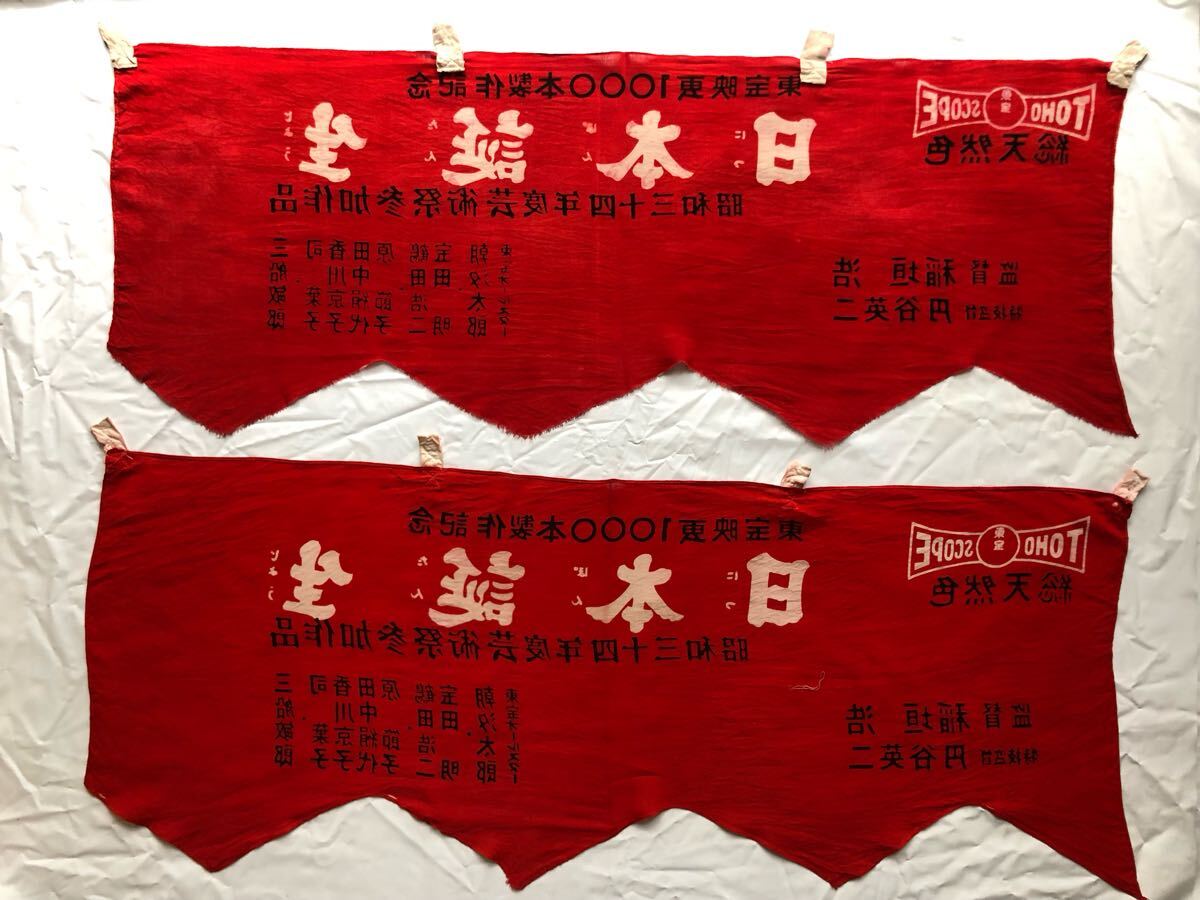 TOHO 東宝 SCOPE
総天然色
東宝映画1000本製作記念
日本誕生
にっぽんたんじょう
昭和三十四年度芸術祭参加作品
監督 稲垣 浩
特技監督 円谷英二
三船敏郎
司 葉子
香川京子
田中絹代
原 節子
鶴田浩二
宝田 明
朝汐太郎
東宝オールスター
TOHO 東宝 SCOPE
総天然色
東宝映画1000本製作記念
日本誕生
にっぽんたんじょう
昭和三十四年度芸術祭参加作品
監督 稲垣 浩
特技監督 円谷英二
三船敏郎
司 葉子
香川京子
田中絹代
原 節子
鶴田浩二
宝田 明
朝汐太郎
東宝オールスター